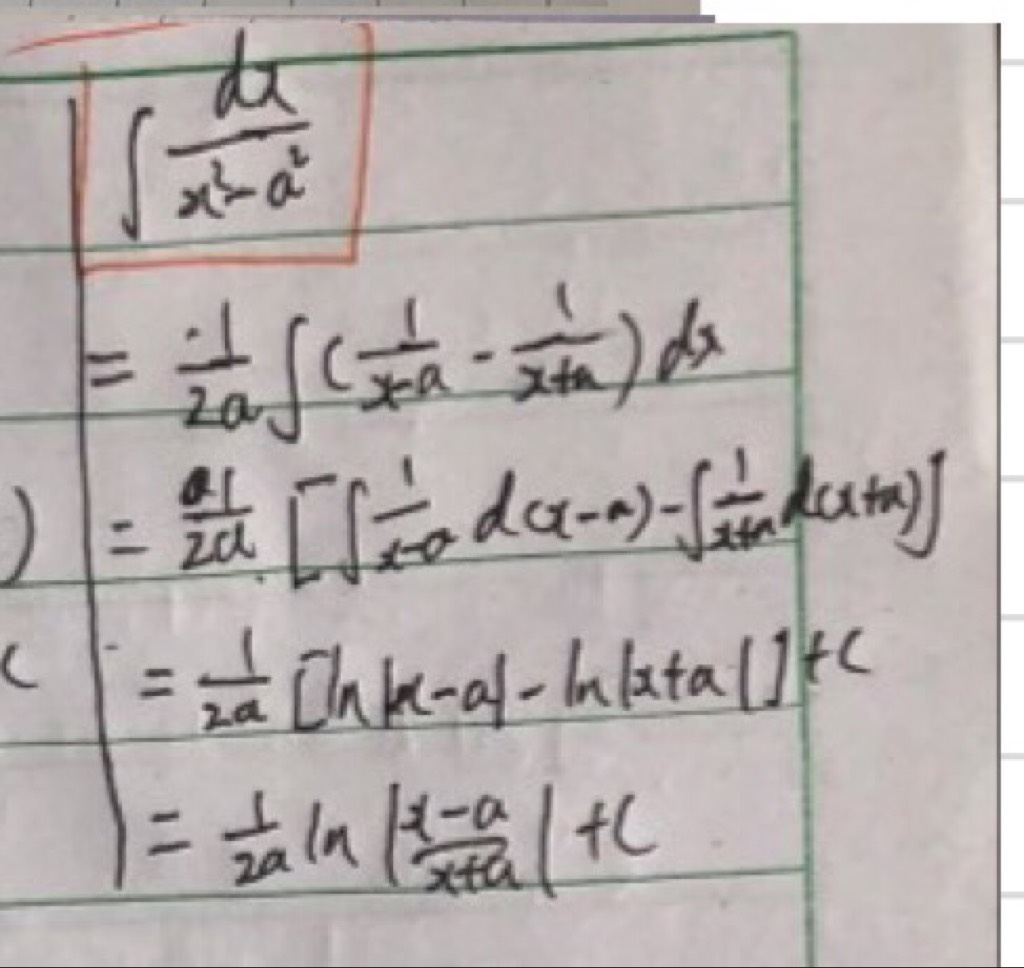 ∫ dx/(x²-a²)
= 1/2a ∫ (1/(x-a) - 1/(x+a)) dx
) = 1/2a [∫ 1/(x-a) d(x-a) - ∫ 1/(x+a) d(x+a)]
= 1/2a [ln|x-a| - ln|x+a|] + C
= 1/2a ln |(x-a)/(x+a)| + C